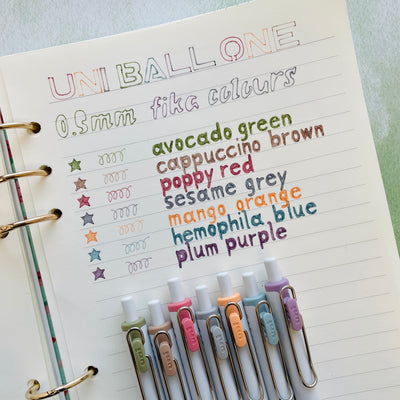 UNI BALL ONE
0.5mm fika colours
avocado green
cappuccino brown
poppy red
sesame grey
mango orange
hemophila blue
plum purple